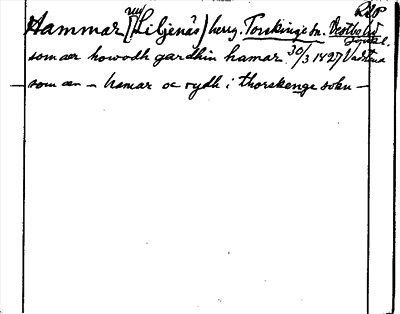 RAP
Hammar [nu Liljenäs] herrg. Torskinge sn. Västbo hd
Jönk. l.
som ær howodh gardhin hamar 30/3 1427 Vadstena
som æn - hamar oc rydh i thorskenge sokn -